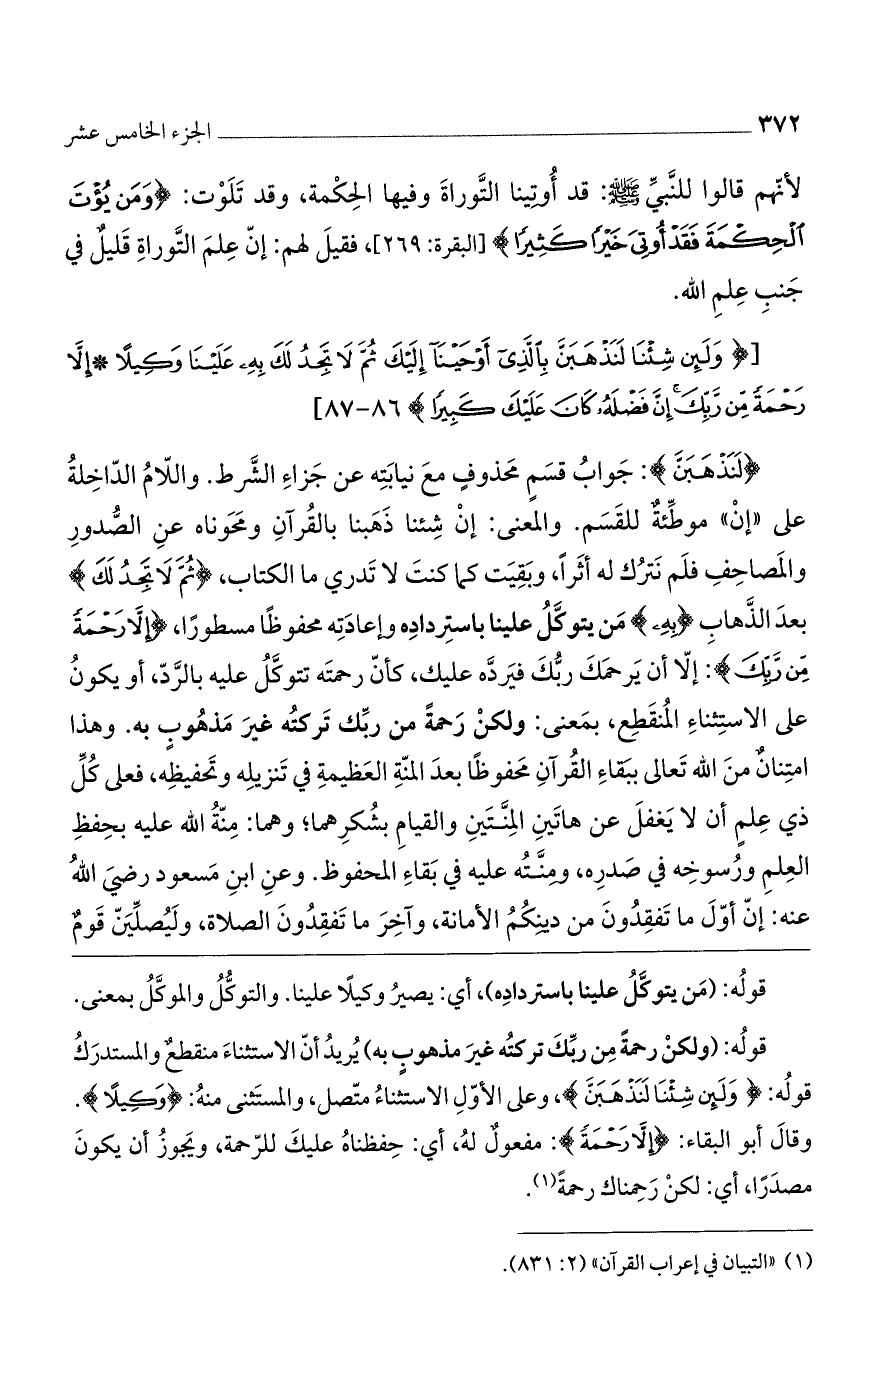 ٣٧٢ الجزء الخامس عشر
لأنّهم قالوا للنَّبيِّ ﷺ: قد أُوتِينا التَّوراةَ وفيها الحِكْمة، وقد تَلَوْت: ﴿وَمَن يُؤْتَ
ٱلْحِكْمَةَ فَقَدْ أُوتِىَ خَيْرًا كَثِيرًا﴾ [البقرة: ٢٦٩]، فقيلَ لهم: إنّ عِلمَ التَّوراةِ قَليلٌ في
جَنبِ عِلمِ الله.
[﴿وَلَئِن شِئْنَا لَنَذْهَبَنَّ بِٱلَّذِىٓ أَوْحَيْنَآ إِلَيْكَ ثُمَّ لَا تَجِدُ لَكَ بِهِۦ عَلَيْنَا وَكِيلًا * إِلَّا
رَحْمَةً مِّن رَّبِّكَ ۚ إِنَّ فَضْلَهُۥ كَانَ عَلَيْكَ كَبِيرًا﴾ ٨٦-٨٧]
﴿لَنَذْهَبَنَّ﴾: جَوابُ قسَمٍ مَحذوفٍ معَ نيابَتِه عن جَزاءِ الشَّرط. واللّامُ الدّاخِلةُ
على «إنْ» موطِّئةٌ للقَسَم. والمعنى: إنْ شِئنا ذَهَبنا بالقُرآنِ ومحَوناه عنِ الصُّدورِ
والمَصاحِفِ فلَم نَترُك له أثَراً، وبَقِيَت كما كنتَ لا تَدري ما الكتاب، ﴿ثُمَّ لَا تَجِدُ لَكَ﴾
بعدَ الذَّهابِ ﴿بِهِۦ﴾ مَن يتوكَّلُ علينا باستِردادِه وإعادَتِه محفوظًا مسطورًا، ﴿إِلَّا رَحْمَةً
مِّن رَّبِّكَ﴾: إلّا أن يَرحمَكَ ربُّكَ فيَردَّه عليك، كأنّ رحمتَه تتوكَّلُ عليه بالرَّدّ، أو يكونُ
على الاستِثناءِ المُنقَطِع، بمَعنى: ولكنْ رَحمةً من ربِّك تَركتُه غيرَ مَذهُوبٍ به. وهذا
امتِنانٌ منَ الله تَعالى ببَقاءِ القُرآنِ مَحفوظًا بعدَ المنّةِ العَظيمةِ في تَنزيلِه وتَحفيظِه، فعلى كُلِّ
ذي عِلمٍ أن لا يَغفلَ عن هاتَينِ المِنَّتَينِ والقيامِ بشُكرِهما؛ وهما: مِنّةُ الله عليه بحِفظِ
العِلمِ ورُسوخِه في صَدرِه، ومِنَّتُه عليه في بَقاءِ المحفوظ. وعنِ ابنِ مَسعود رضيَ اللهُ
عنه: إنّ أوّلَ ما تَفقِدُونَ من دينِكُمُ الأمانة، وآخِرَ ما تَفقِدُونَ الصلاة، ولَيُصلِّيَنّ قَومٌ
قولُه: (مَن يتوكَّلُ علينا باستردادِه)، أي: يصيرُ وكيلًا علينا. والتوكُّلُ والموكَّلُ بمعنى.
قولُه: (ولكنْ رحمةً مِن ربِّكَ تركتُه غيرَ مذهوبٍ به) يُريدُ أنّ الاستثناءَ منقطعٌ والمستدرَكُ
قولُه: ﴿وَلَئِن شِئْنَا لَنَذْهَبَنَّ﴾، وعلى الأوّلِ الاستثناءُ متّصل، والمستَثنى منهُ: ﴿وَكِيلًا﴾.
وقالَ أبو البقاء: ﴿إِلَّا رَحْمَةً﴾: مفعولٌ لهُ، أي: حِفظناهُ عليكَ للرّحمة، ويَجوزُ أن يكونَ
مصدَرًا، أي: لكنْ رَحِمناك رحمةً(١).
(١) «التبيان في إعراب القرآن» (٢: ٨٣١).